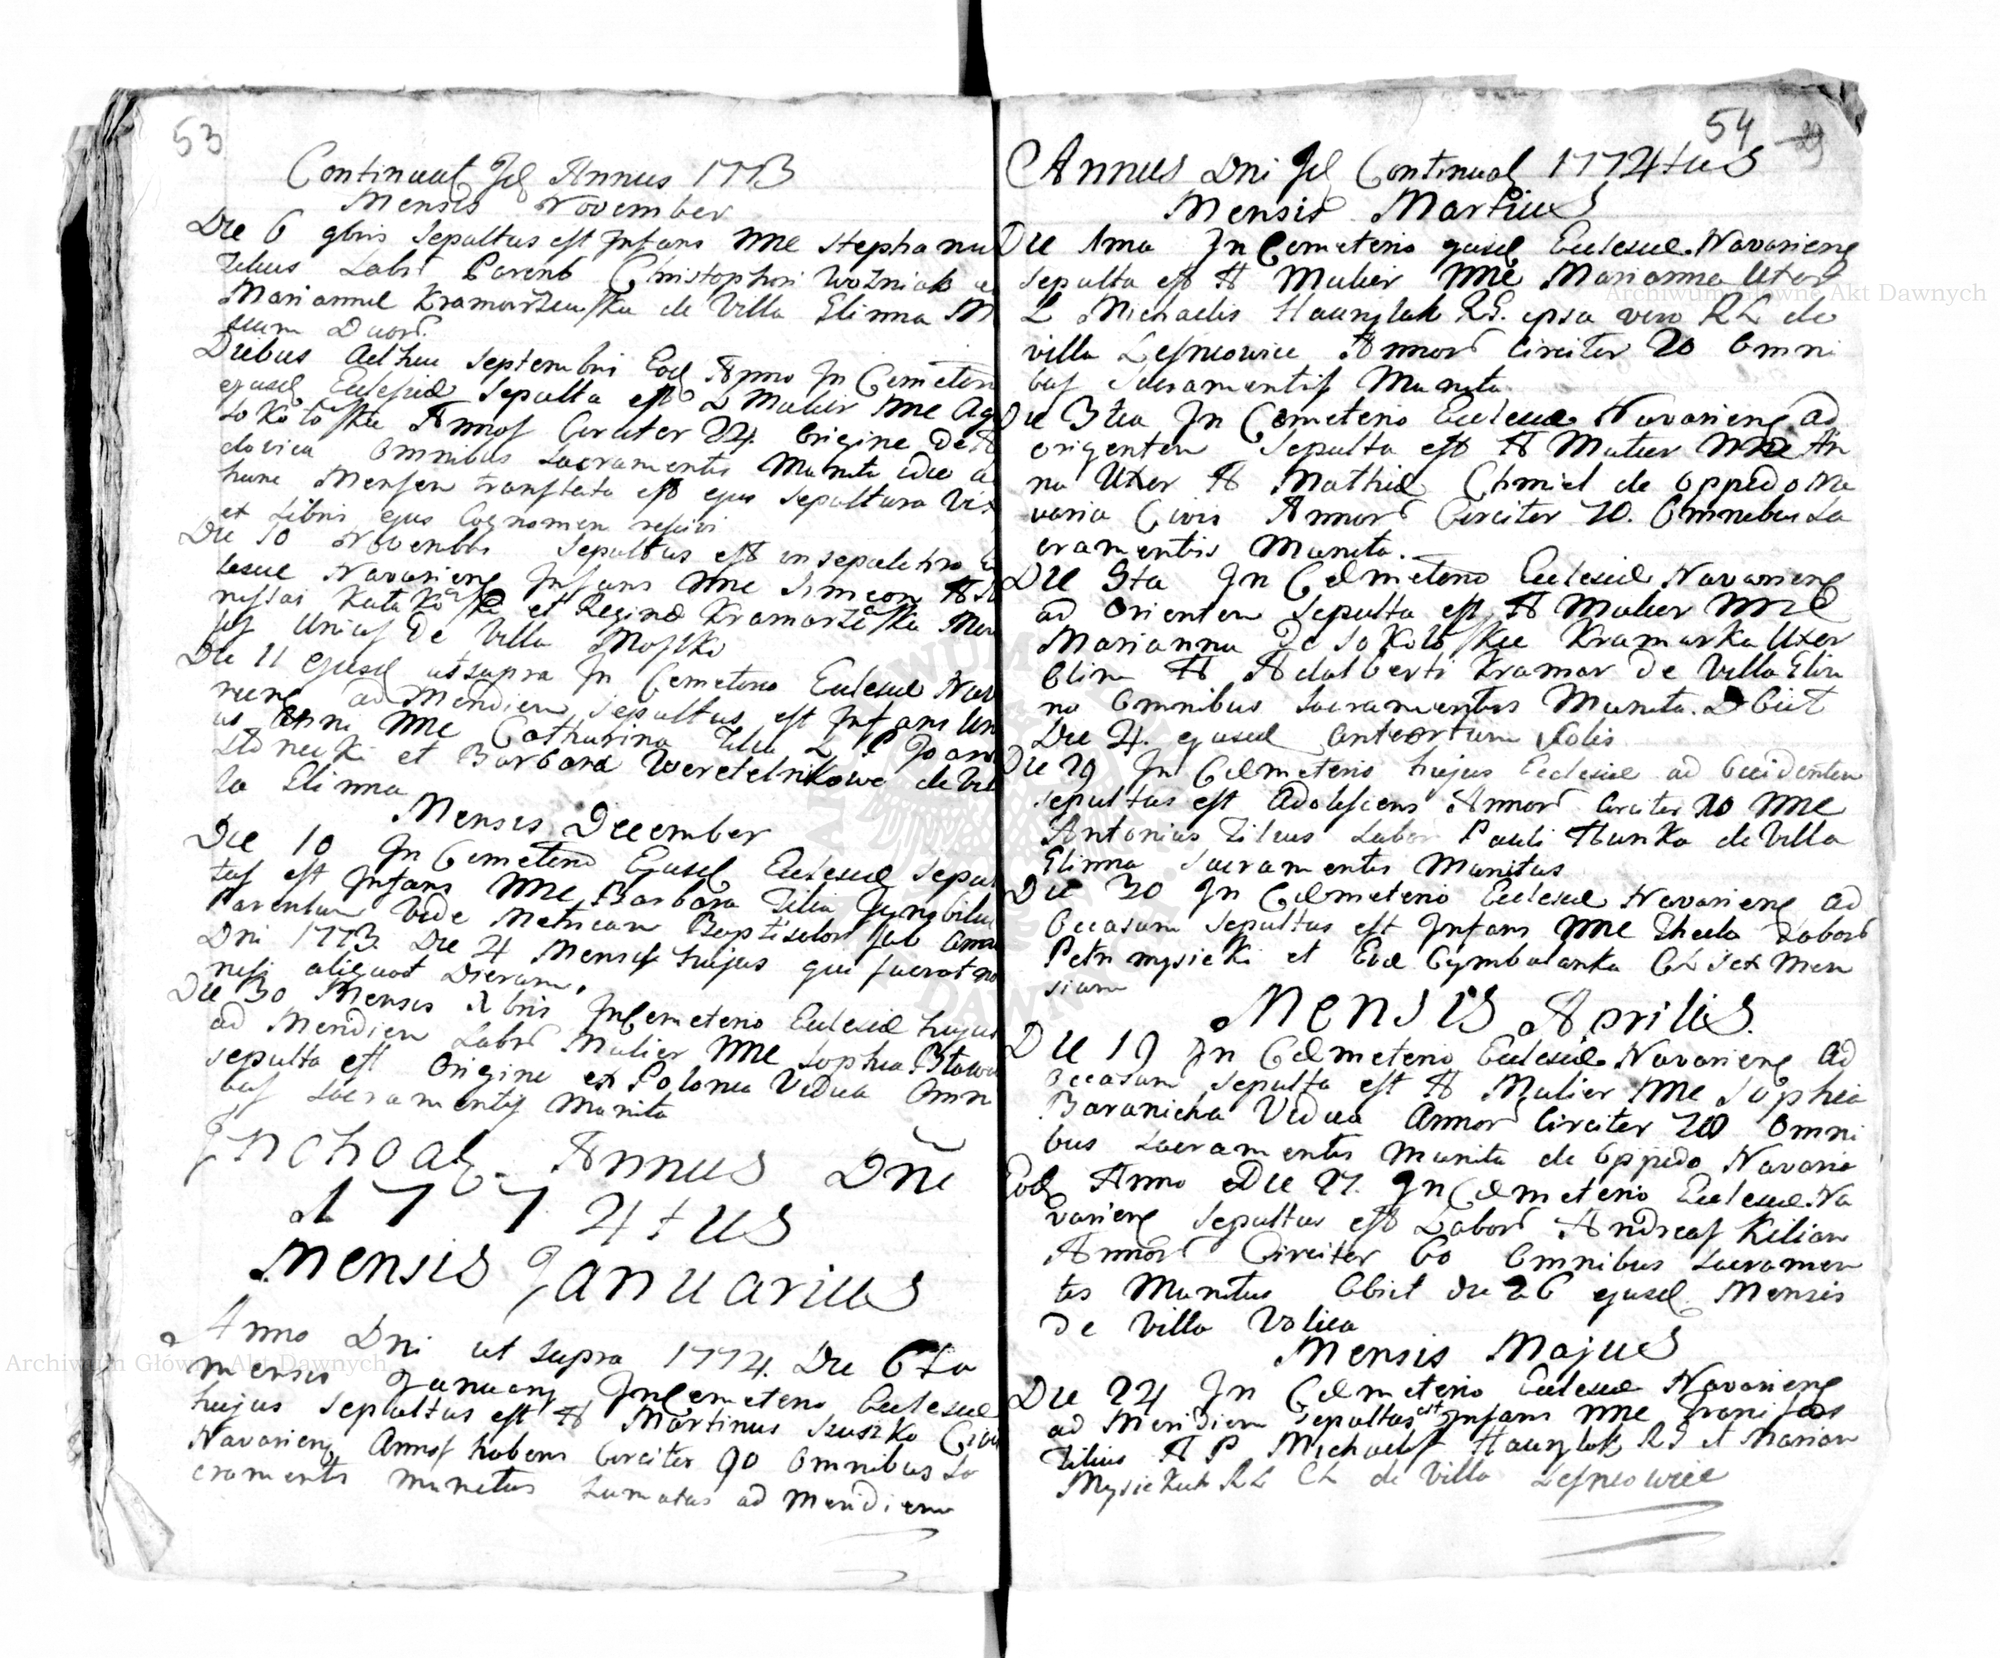 53
Continuat Id Annus 1773
Mensis November
Die 6 9bris Sepultus est Infans nne Stephanu
Filius Labor Parent Christophori Wozniak
Mariannae de Villa Glinna M
sium Duor
Diebus Adhuc Septembri Eod Anno In Cemeteri
ejusd Ecclesiae Sepulta est L Mulier nne Ag
Annos Circiter 24. Origine De
Omnibus Sacramentis Munita ideo
hunc Mensem translata est ejus Sepultura
et Libri ejus Cognomen nescivi
Die 10 Novembris Sepultus est in sepulchro
clesiae Navariens Infans nne Simeon
et Reginae Men
sis Unius De Villa Mostki
Die 11 Ejusd ut supra In Cemeterio Ecclesiae Nav
riens ad Meridiem Sepultus est Infans Un
us Anni nne Catharina Filia L P Joan
et Barbara Weretelnikowe de Vil
la Glinna
Mensis December
Die 10 In Cemeterio Ejusd Ecclesiae Sepul
tus est Infans nne Barbara Filia Ignobiliu
Parentum Vide Metricam Baptisator sub Anno
Dni 1773 Die 4 Mensis hujus qui fuerat no
nisi aliquot Dierum.
Die 30 Mensis Xbris In Cemeterio Ecclesiae hujus
ad Meridiem Labor Mulier nne Sophia
sepulta est Origine ex Polonia Vidua Omni
bus Sacramentis Munita
Inchoat. Annus Dñi
1774tus
Mensis Januarius
Anno Dni ut supra 1774. Die 6ta
mensis January In Cemeterio Ecclesiae
hujus Sepultus est H Martinus Szuszko Civis
Navariens Annos habens Circiter 90 Omnibus Sa
cramentis munitus humatus ad Meridiem
54
Annus Dni Id Continuat 1774tus
Mensis Martius
Die 1ma In Cemeterio ejusd Ecclesiae Navariens
sepulta est H Mulier nne Marianna Uxor
L Michaelis ipsa vero RL de
villa Lesniowice Annor Circiter 20 Omni
bus Sacramentis Munita
Die 3tia In Cemeterio Ecclesiae Navariens ad
origentem Sepulta est H Mulier nne An
na Uxor H Mathiae Chmiel de Oppido Na
varia Civis Annor Circiter 70. Omnibus Sa
cramentis Munita.
Die 5ta In Caemeterio Ecclesiae Navariens
ad Orientem Sepulta est H Mulier nne
Marianna De Kramarka Uxor
Olim H Adalberti Kramar de Villa Glin
na Omnibus Sacramentis Munita. Obiit
Die 4. ejusd ante ortum Solis
Die 29 In Caemeterio hujus Ecclesiae ad Occidentem
sepultus est Adolescens Annor Circiter 20 nne
Antonius Filius Labor Pauli Hunka de Villa
Glinna Sacramentis Munitus
Die 30 In Caemeterio Ecclesiae Navariens ad
Occasum Sepultus est Infans nne Thecla Labor
Petri mysicki et Evae Cymbalanka CL Sex Men
sium
Mensis Aprilis.
Die 19 In Caemeterio Ecclesiae Navariens ad
Occasum Sepulta est H Mulier nne Sophia
Baranicha Vidua Annor Circiter 70 Omni
bus Sacramentis Munita de Oppido Navaria
Eod Anno Die 27. In Caemeterio Ecclesiae Na
variens Sepultus est Labor Andreas Kilian
Annor Circiter 60 Omnibus Sacramen
tis Munitus Obiit die 26 ejusd Mensis
de Villa Volica
Mensis Majus
Die 24 In Caemeterio Ecclesiae Navariens
ad Meridiem Sepultus est Infans nne
Filius H P Michaelis RG et Marian
RL CL de Villa Lesniowice
Archiwum Główne Akt Dawnych
Archiwum Główne Akt Dawnych